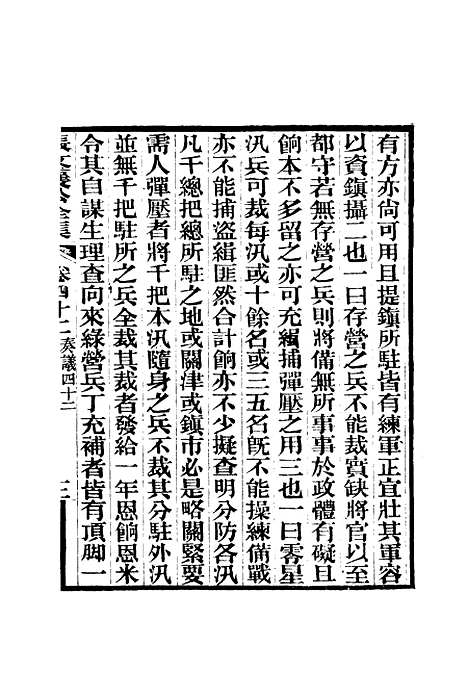 有方亦尙可用且提鎭所駐皆有練軍正宜壯其軍容
以資鎭攝二也一曰存營之兵不能裁實缺將官以至
都守若無存營之兵則將備無所事事於政體有礙且
餉本不多留之亦可充緝捕彈壓之用三也一曰零星
汛兵可裁每汛或十餘名或三五名旣不能操練備戰
亦不能捕盜緝匪然合計餉亦不少擬查明分防各汛
凡千總把總所駐之地或關津或鎭市必是略關緊要
需人彈壓者將千把本汛隨身之兵不裁其分駐外汛
並無千把駐所之兵全裁其裁者發給一年恩餉恩米
令其自謀生理查向來綠營兵丁充補者皆有頂脚一
張文襄公全集 卷四十二 奏議四十二